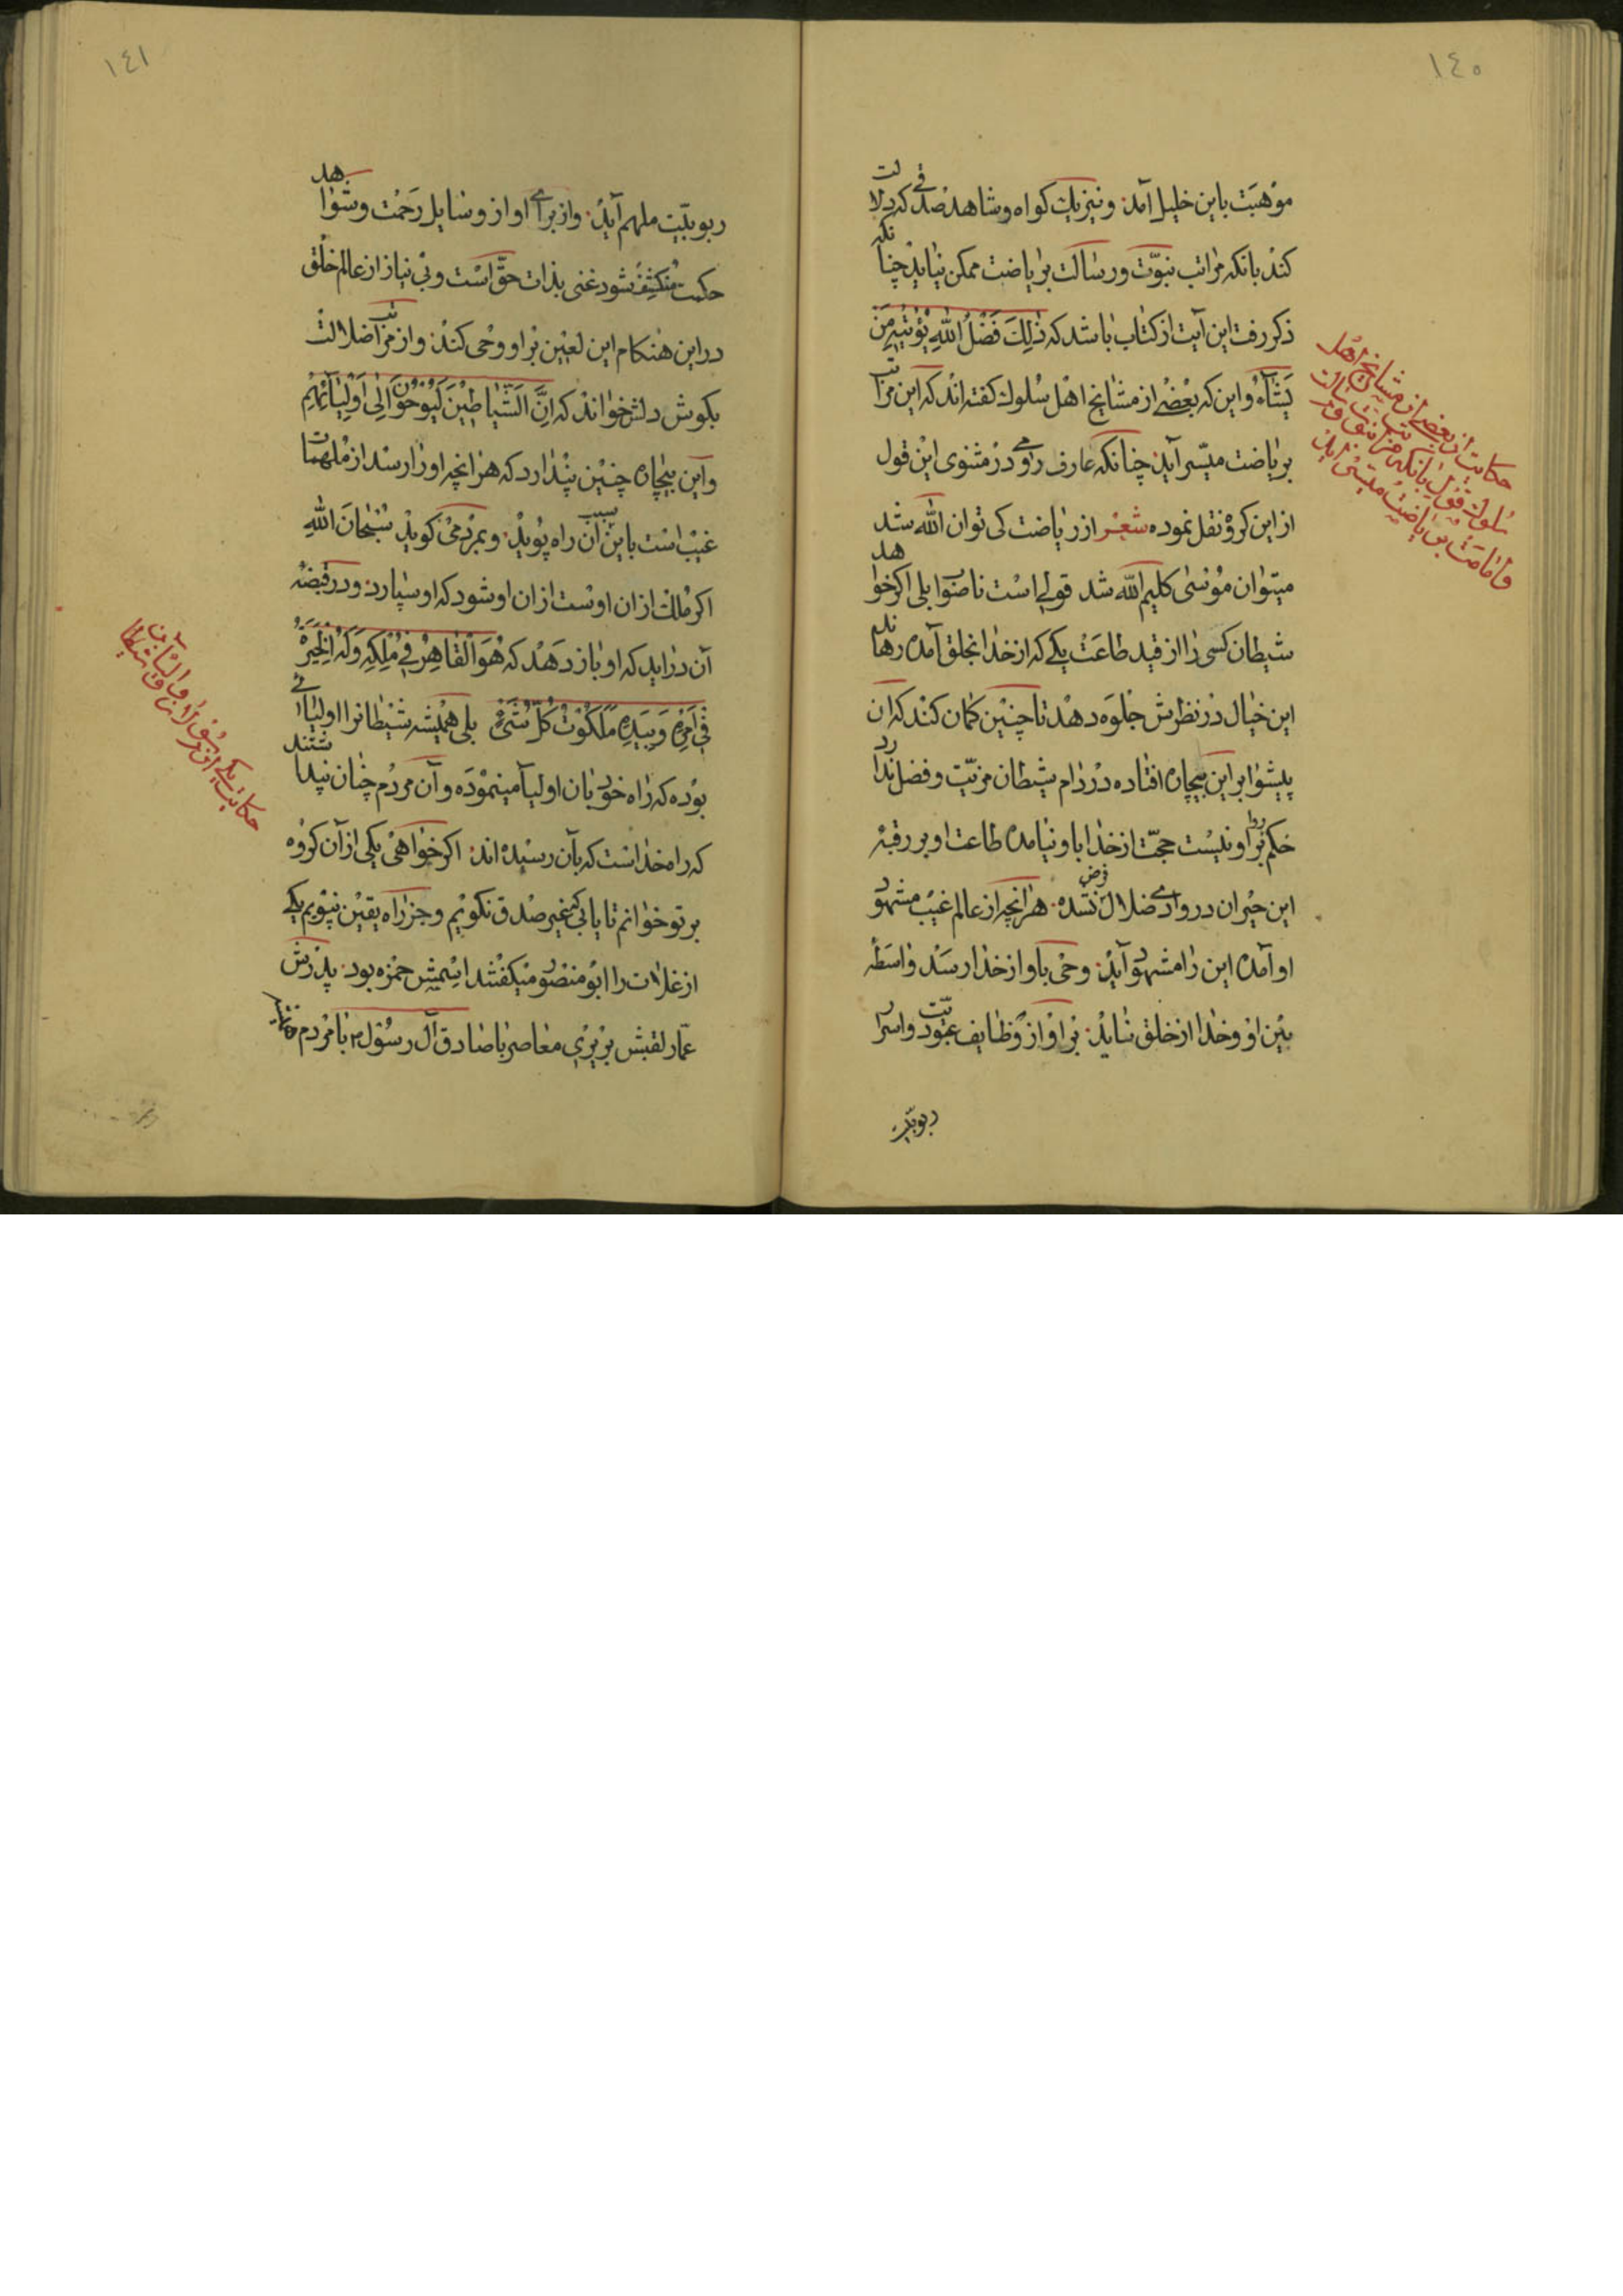 ١٤٠
موهبت باین خلیل آمد و نیز یك كواه و شاهد صدقی كه دلالت
كند بانكه مراتب نبوّت و رسالت بریاضت ممكن نیاید چنانكه
ذكر رفت این آیت از كتاب باشد كه ذٰلِكَ فَضْلُ اللهِ یُؤْتِیهِ مَنْ
یَشَآءُ و این كه بعضی از مشایخ اهل سلوك كفته اند كه این مراتب
بریاضت میسّر آید چنانكه عارف رومی در مثنوی این قول
از این كروه نقل نموده شعر از ریاضت كی توان الله شد
میتوان موسی كلیم الله شد قولی است ناصواب بلی اكر خواهد
شیطان كسی را از قید طاعت یكی كه از خدا بخلق آمده رهاند
این خیال در نظرش جلوه دهد تا چنین كمان كند كه ان
پیشوا بر این بیچاره افتاده در دام شیطان مزیّت و فضل ندارد
حكم بر او نیست حجّت از خدا با و نیامده طاعت او بر رقبهٔ
این حیران در وادی ضلال فرض نشده هرانچه از عالم غیب مشهود
او آمده این را مشهود آید وحی باو از خدا رسد واسطه
بین او و خدا از خلق نباید بر او از وظایف عبودیّت و اسرار
ربوبیّت
حكایت از بعضی از مشایخ اهل
سلوك قول بانكه مراتب نبوّت و رسالت
و امامت بریاضت میسّر آید
١٤١
ربوبیّت ملهم آید و از برای او از وسایل رحمت و شواهد
حكمت منكشف شود غنی بذات حقّ است و بی نیاز از عالم خلق
در این هنكام این لعین بر او وحی كند و از مراتب ضلالت
بكوش دلش خواند كه اِنَّ الشَّیَاطِینَ لَیُوحُونَ اِلٰی اَوْلِیَآئِهِمْ
و این بیچاره چنین پندارد كه هرانچه او را رسد از ملهمات
غیب است باین سبب ان راه پوید و بمردم می كوید سُبْحَانَ اللهِ
اكر ملك از ان اوست از ان او شود كه او سپارد و در قبضهٔ
آن دراید كه او باز دهد كه هُوَ الْقَاهِرُ فِی مُلْكِهِ وَ لَهُ الْخِیَرَةُ
فِی اَمْرِهِ وَ بِیَدِهِ مَلَكُوتُ كُلِّ شَیْءٍ بلی همیشه شیطانرا اولیائی
بوده كه راه خود بان اولیا مینموده و آن مردم چنان پنداشتند
كه راه خداست كه بآن رسیده اند اكر خواهی یكی از آن كروه
بر تو خوانم تا یابی كه غیر صدق نكویم و جز راه یقین نپویم یكی
از غلات را ابو منصور میكفتند اسمش حمزه بود پدرش
عمّار لقبش بربری معاصر با صادق آل رسول ۴ با مردم
حكایت یكی از